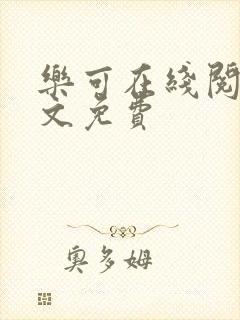 樂可在綫閱
文免費
奧多姆